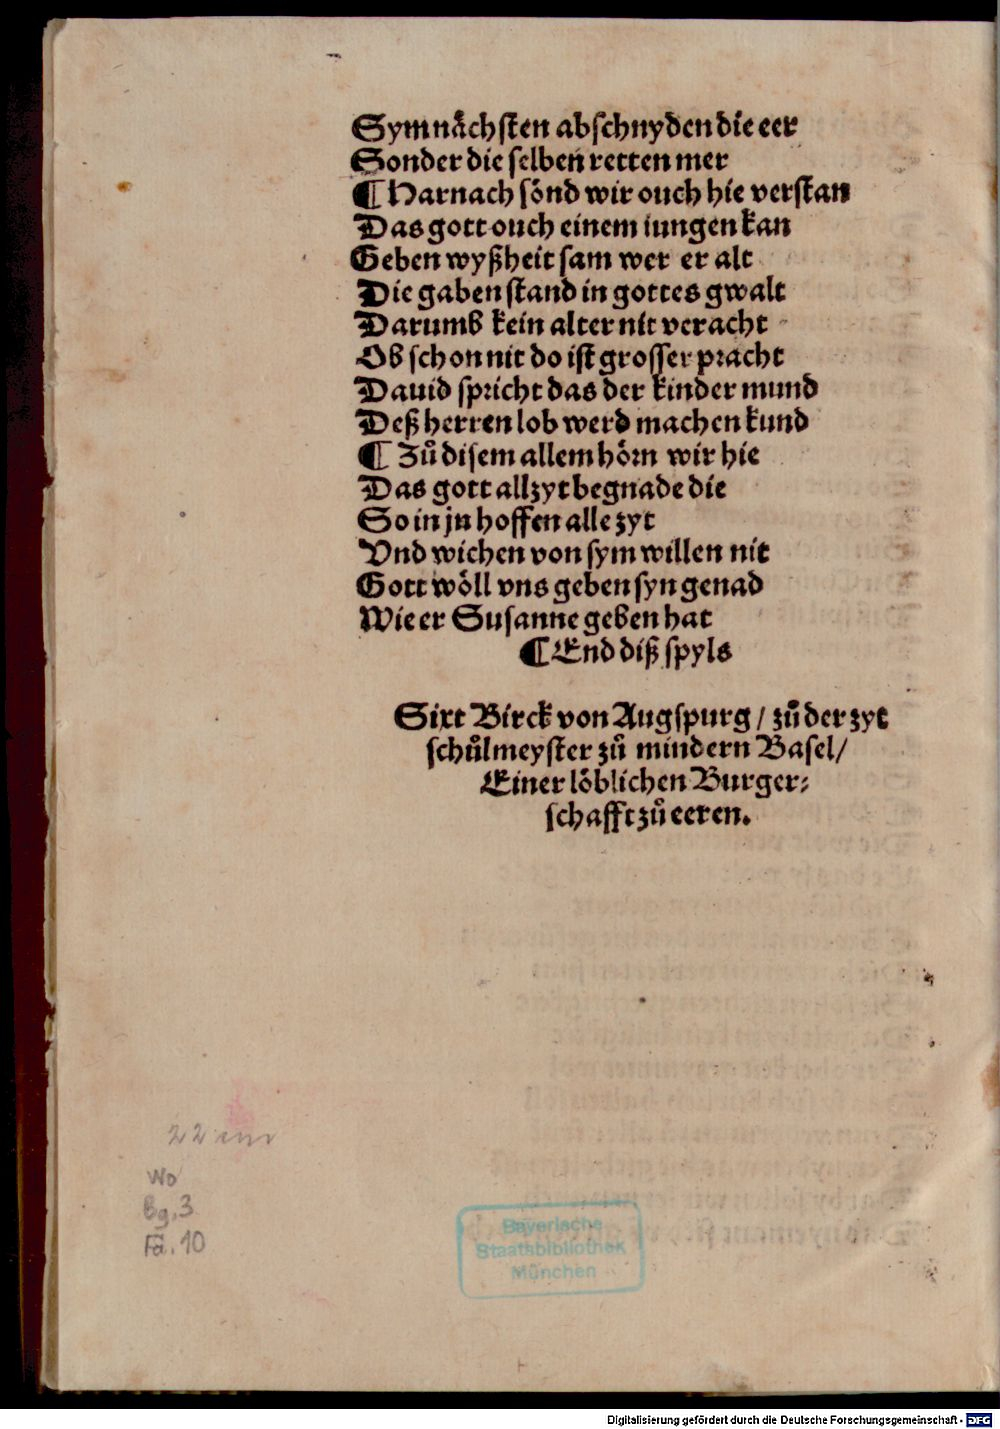 Sym nächsten abschnyden die eer
Sonder die selben retten mer
¶ Harnach sönd wir ouch hie verstan
Das gott ouch einem iungen kan
Geben wyßheit sam wer er alt
Die gaben stand in gottes gwalt
Darumb kein alter nit veracht
Ob schon nit do ist grosser pracht
Dauid spricht das der kinder mund
Deß herren lob werd machen kund
¶ Zuͦ disem allem hörn wir hie
Das gott allzyt begnade die
So in jn hoffen alle zyt
Vnd wichen von sym willen nit
Gott wöll vns geben syn genad
Wie er Susanne geben hat
¶ End diß spyls
Sixt Birck von Augspurg / zuͦ der zyt
schuͦlmeyster zuͦ mindern Basel /
Einer löblichen Burger⸗
schafft zuͦ eeren.
22 cm
Wo
Bg. 3
Fa. 10
Bayerische
Staatsbibliothek
München
Digitalisierung gefördert durch die Deutsche Forschungsgemeinschaft - DFG